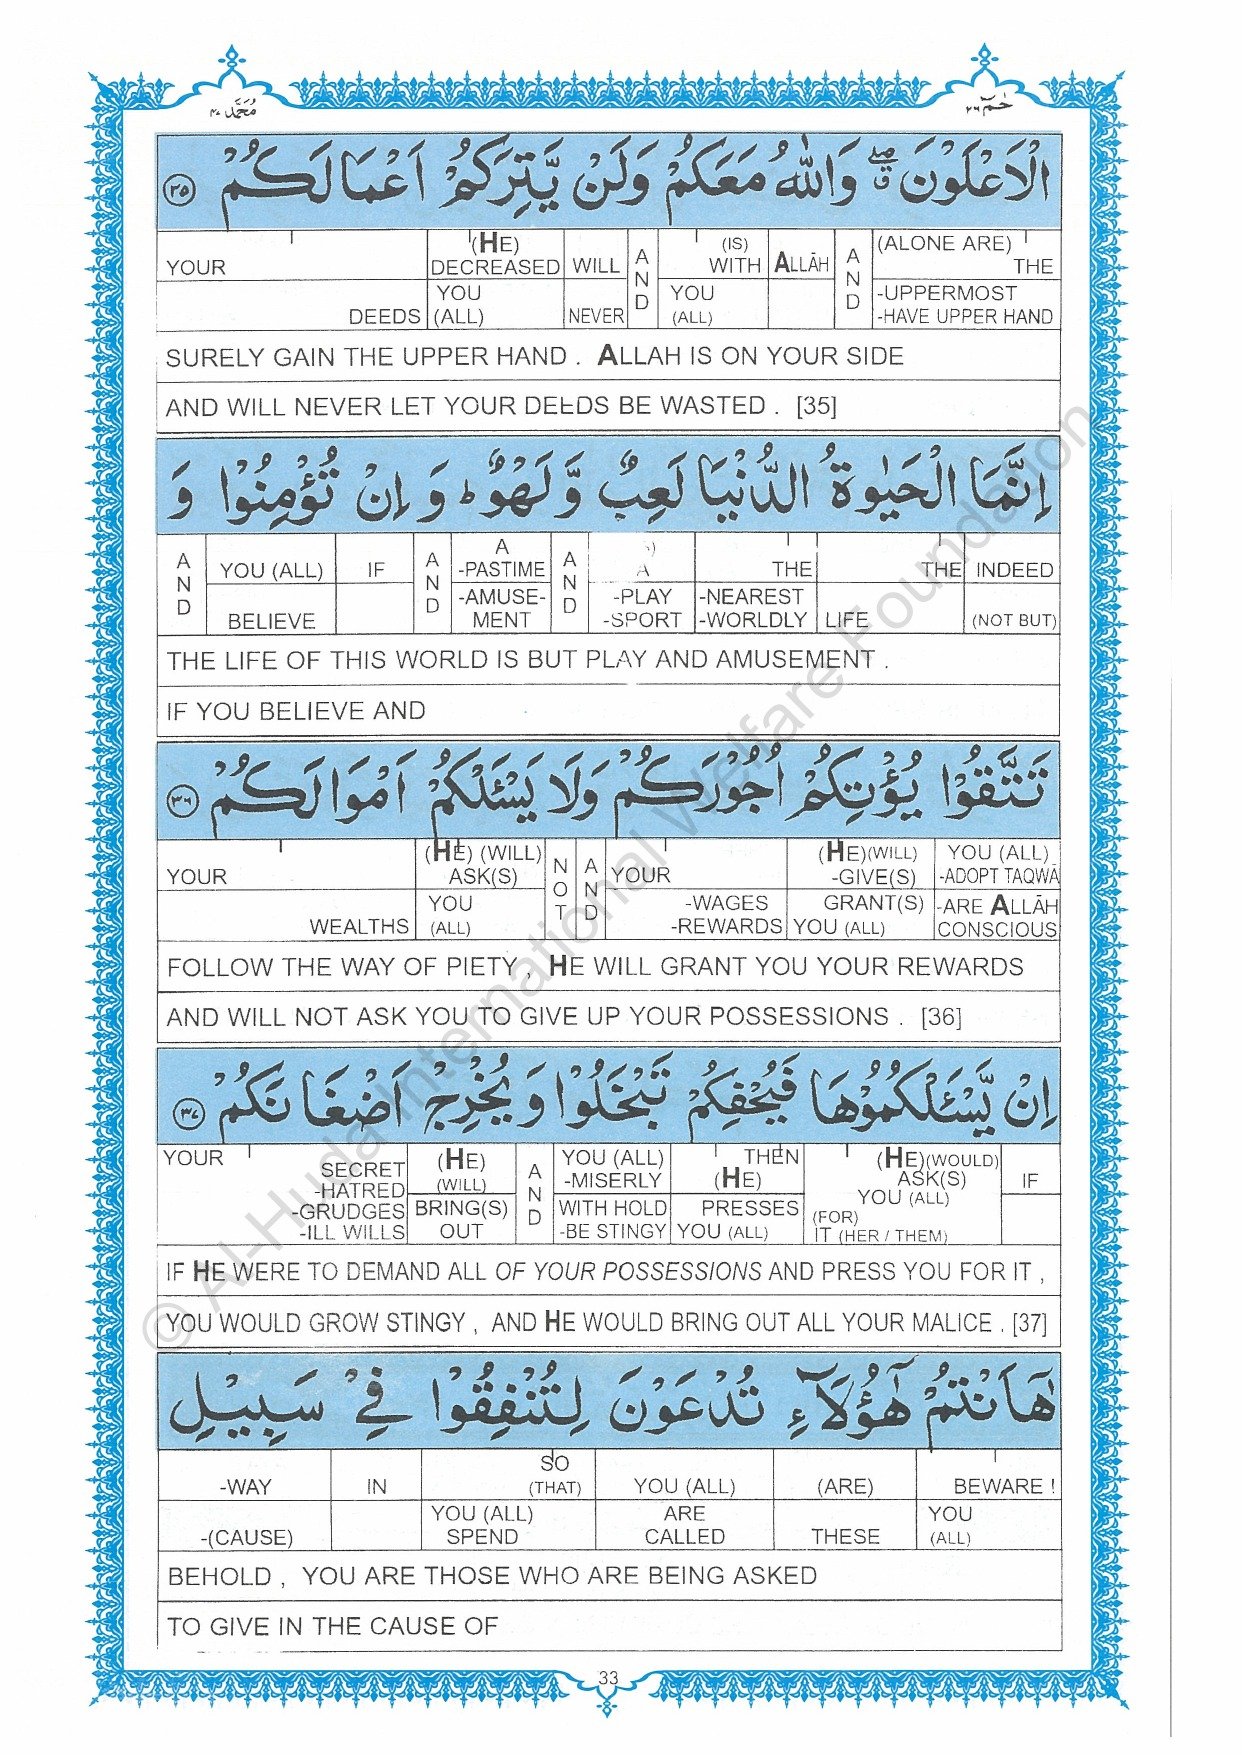 محمد ٤٧
حٰمٓ ٢٦
الْاَعْلَوْنَ ۖ ق وَاللّٰهُ مَعَكُمْ وَلَنْ يَّتِرَكُمْ اَعْمَالَكُمْ ﴿٣٥﴾
YOUR | (HE) DECREASED | WILL | AND | (IS) WITH | ALLĀH | AND | (ALONE ARE) THE
DEEDS | YOU (ALL) | NEVER | YOU (ALL) | -UPPERMOST -HAVE UPPER HAND
SURELY GAIN THE UPPER HAND . ALLAH IS ON YOUR SIDE
AND WILL NEVER LET YOUR DEEDS BE WASTED . [35]
اِنَّمَا الْحَيٰوةُ الدُّنْيَا لَعِبٌ وَّلَهْوٌ ط وَاِنْ تُؤْمِنُوْا وَ
AND | YOU (ALL) | IF | AND | A -PASTIME | AND | A | THE | THE | INDEED
BELIEVE | -AMUSE- MENT | -PLAY -SPORT | -NEAREST -WORLDLY | LIFE | (NOT BUT)
THE LIFE OF THIS WORLD IS BUT PLAY AND AMUSEMENT .
IF YOU BELIEVE AND
تَتَّقُوْا يُؤْتِكُمْ اُجُوْرَكُمْ وَلَا يَسْـَٔلْكُمْ اَمْوَالَكُمْ ﴿٣٦﴾
YOUR | (HE) (WILL) ASK(S) | NOT | AND | YOUR | (HE)(WILL) -GIVE(S) | YOU (ALL) -ADOPT TAQWĀ
WEALTHS | YOU (ALL) | -WAGES -REWARDS | GRANT(S) YOU (ALL) | -ARE ALLĀH CONSCIOUS
FOLLOW THE WAY OF PIETY , HE WILL GRANT YOU YOUR REWARDS
AND WILL NOT ASK YOU TO GIVE UP YOUR POSSESSIONS . [36]
اِنْ يَّسْـَٔلْكُمُوْهَا فَيُحْفِكُمْ تَبْخَلُوْا وَيُخْرِجْ اَضْغَانَكُمْ ﴿٣٧﴾
YOUR | SECRET -HATRED | (HE) (WILL) | AND | YOU (ALL) -MISERLY | THEN (HE) | (HE)(WOULD) ASK(S) YOU (ALL) | IF
-GRUDGES -ILL WILLS | BRING(S) OUT | WITH HOLD -BE STINGY | PRESSES YOU (ALL) | (FOR) IT (HER / THEM)
IF HE WERE TO DEMAND ALL OF YOUR POSSESSIONS AND PRESS YOU FOR IT ,
YOU WOULD GROW STINGY , AND HE WOULD BRING OUT ALL YOUR MALICE . [37]
هٰٓاَنْتُمْ هٰٓؤُلَآءِ تُدْعَوْنَ لِتُنْفِقُوْا فِيْ سَبِيْلِ
-WAY | IN | SO (THAT) | YOU (ALL) | (ARE) | BEWARE !
-(CAUSE) | YOU (ALL) SPEND | ARE CALLED | THESE | YOU (ALL)
BEHOLD , YOU ARE THOSE WHO ARE BEING ASKED
TO GIVE IN THE CAUSE OF
33
© Al-Huda International Welfare Foundation